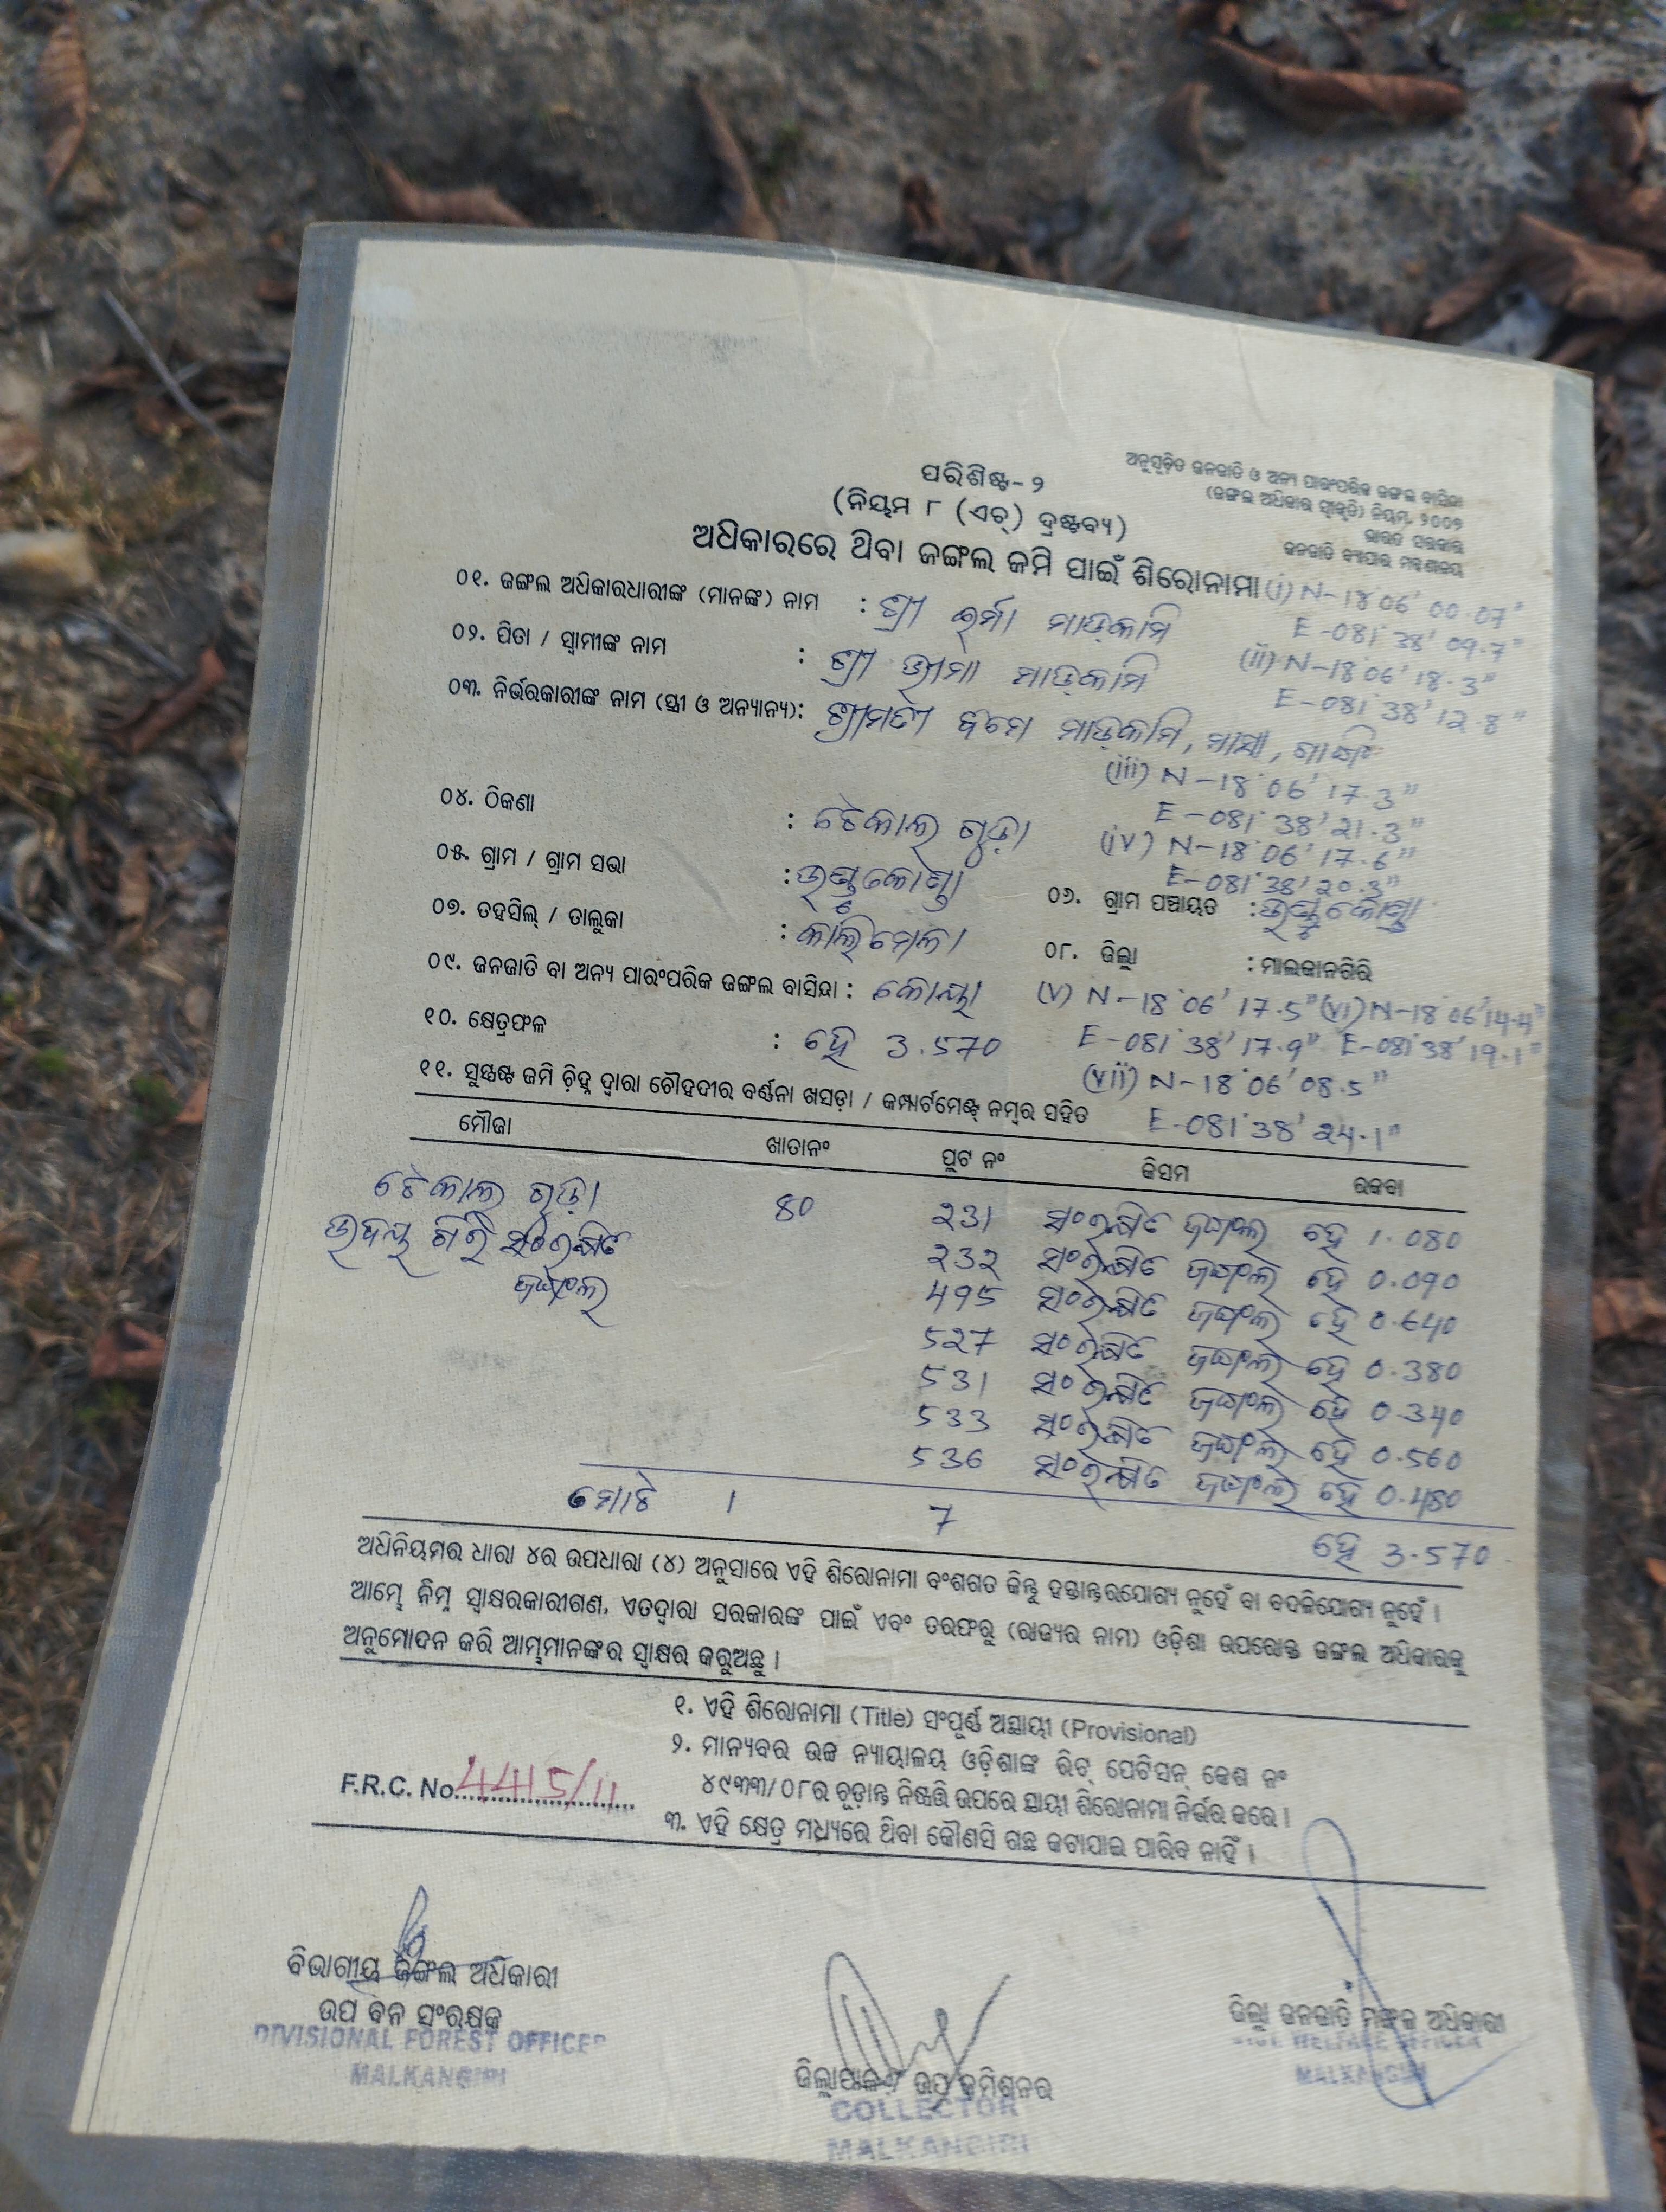 ଅନୁସୂଚିତ ଜନଜାତି ଓ ଅନ୍ୟ ପାରଂପରିକ ଜଙ୍ଗଲ ବାସିନ୍ଦା
(ଜଙ୍ଗଲ ଅଧିକାର ସ୍ୱୀକୃତି) ନିୟମ, ୨୦୦୭
ଭାରତ ସରକାର
ଜନଜାତି ବ୍ୟାପାର ମନ୍ତ୍ରଣାଳୟ
ପରିଶିଷ୍ଟ-୨
(ନିୟମ ୮ (ଏଚ୍) ଦ୍ରଷ୍ଟବ୍ୟ)
ଅଧିକାରରେ ଥିବା ଜଙ୍ଗଲ ଜମି ପାଇଁ ଶିରୋନାମା
(i) N-18°06' 00.07"
E-081°38' 09.7"
୦୧. ଜଙ୍ଗଲ ଅଧିକାରଧାରୀଙ୍କ (ମାନଙ୍କ) ନାମ : ଶ୍ରୀ ଇର୍ମା ମାଡ଼କାମି
(ii) N-18°06' 18.3"
E-081°38' 12.8"
୦୨. ପିତା / ସ୍ୱାମୀଙ୍କ ନାମ : ଶ୍ରୀ ଭୀମା ମାଡ଼କାମି
୦୩. ନିର୍ଭରକାରୀଙ୍କ ନାମ (ସ୍ତ୍ରୀ ଓ ଅନ୍ୟାନ୍ୟ): ଶ୍ରୀମତୀ ମାଡ଼କାମି,
(iii) N-18°06' 17.3"
E-081°38' 21.3"
୦୪. ଠିକଣା : ଟେକାଲ ଗୁଡ଼ା
(iv) N-18°06' 17.6"
E-081°38' 20.3"
୦୫. ଗ୍ରାମ / ଗ୍ରାମ ସଭା :
୦୬. ଗ୍ରାମ ପଞ୍ଚାୟତ :
୦୭. ତହସିଲ୍ / ତାଲୁକା : କାଲିମେଳା
୦୮. ଜିଲ୍ଲା : ମାଲକାନଗିରି
୦୯. ଜନଜାତି ବା ଅନ୍ୟ ପାରଂପରିକ ଜଙ୍ଗଲ ବାସିନ୍ଦା : କୋୟା
(v) N-18°06' 17.5" (vi) N-18°06'14.4"
E-081°38' 17.9" E-081°38'19.1"
୧୦. କ୍ଷେତ୍ରଫଳ : ହେ 3.570
(vii) N-18°06'08.5"
E-081°38' 24.1"
୧୧. ସୁସ୍ପଷ୍ଟ ଜମି ଚିହ୍ନ ଦ୍ୱାରା ଚୌହଦୀର ବର୍ଣ୍ଣନା ଖସଡ଼ା / କମ୍ପାର୍ଟମେଣ୍ଟ୍ ନମ୍ବର ସହିତ
ମୌଜା ଖାତାନଂ ପ୍ଲଟ ନଂ କିସମ ରକବା
ଟେକାଲ ଗୁଡ଼ା 80 231 ସଂରକ୍ଷିତ ଜଙ୍ଗଲ ହେ 1.080
ଉଦୟ ଗିରି ସଂରକ୍ଷିତ 232 ସଂରକ୍ଷିତ ଜଙ୍ଗଲ ହେ 0.090
ଜଙ୍ଗଲ 495 ସଂରକ୍ଷିତ ଜଙ୍ଗଲ ହେ 0.640
527 ସଂରକ୍ଷିତ ଜଙ୍ଗଲ ହେ 0.380
531 ସଂରକ୍ଷିତ ଜଙ୍ଗଲ ହେ 0.340
533 ସଂରକ୍ଷିତ ଜଙ୍ଗଲ ହେ 0.560
536 ସଂରକ୍ଷିତ ଜଙ୍ଗଲ ହେ 0.480
ମୋଟ 1 7 ହେ 3.570
ଅଧିନିୟମର ଧାରା ୪ର ଉପଧାରା (୪) ଅନୁସାରେ ଏହି ଶିରୋନାମା ବଂଶଗତ କିନ୍ତୁ ହସ୍ତାନ୍ତରଯୋଗ୍ୟ ନୁହେଁ ବା ବଦଳିଯୋଗ୍ୟ ନୁହେଁ ।
ଆମ୍ଭେ ନିମ୍ନ ସ୍ୱାକ୍ଷରକାରୀଗଣ, ଏତଦ୍ୱାରା ସରକାରଙ୍କ ପାଇଁ ଏବଂ ତରଫରୁ (ରାଜ୍ୟର ନାମ) ଓଡ଼ିଶା ଉପରୋକ୍ତ ଜଙ୍ଗଲ ଅଧିକାରକୁ
ଅନୁମୋଦନ କରି ଆମ୍ଭମାନଙ୍କର ସ୍ୱାକ୍ଷର କରୁଅଛୁ ।
୧. ଏହି ଶିରୋନାମା (Title) ସଂପୂର୍ଣ୍ଣ ଅସ୍ଥାୟୀ (Provisional)
୨. ମାନ୍ୟବର ଉଚ୍ଚ ନ୍ୟାୟାଳୟ ଓଡ଼ିଶାଙ୍କ ରିଟ୍ ପେଟିସନ୍ କେଶ ନଂ
୪୯୩୩/୦୮ର ଚୂଡ଼ାନ୍ତ ନିଷ୍ପତ୍ତି ଉପରେ ସ୍ଥାୟୀ ଶିରୋନାମା ନିର୍ଭର କରେ ।
F.R.C. No. 4415/11
୩. ଏହି କ୍ଷେତ୍ର ମଧ୍ୟରେ ଥିବା କୌଣସି ଗଛ କଟାଯାଇ ପାରିବ ନାହିଁ ।
ବିଭାଗୀୟ ଜଙ୍ଗଲ ଅଧିକାରୀ
ଉପ ବନ ସଂରକ୍ଷକ
DIVISIONAL FOREST OFFICER
MALKANGIRI
ଜିଲ୍ଲାପାଳ ଉପ କମିଶନର
COLLECTOR
MALKANGIRI
ଜିଲ୍ଲା ଜନଜାତି ମଙ୍ଗଳ ଅଧିକାରୀ
WELFARE OFFICER
MALKANGIRI